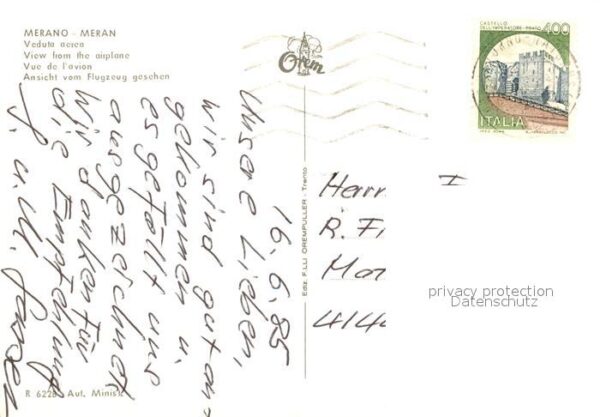 MERANO - MERAN
Veduta aerea
View from the airplane
Vue de l'avion
Ansicht vom Flugzeug gesehen
Orem
CASTELLO
DELL'IMPERATORE - PRATO
400
ITALIA
16.6.85
Unsere Lieben,
wir sind gut an-
gekommen u.
es gefällt uns
ausgezeichnet
Wir danken für
die Empfehlung
Herrn
R. Fi
Mo
414
Ediz. F.LLI OREMPULLER - Trento
privacy protection
Datenschutz
R 6228 Aut. Minist.